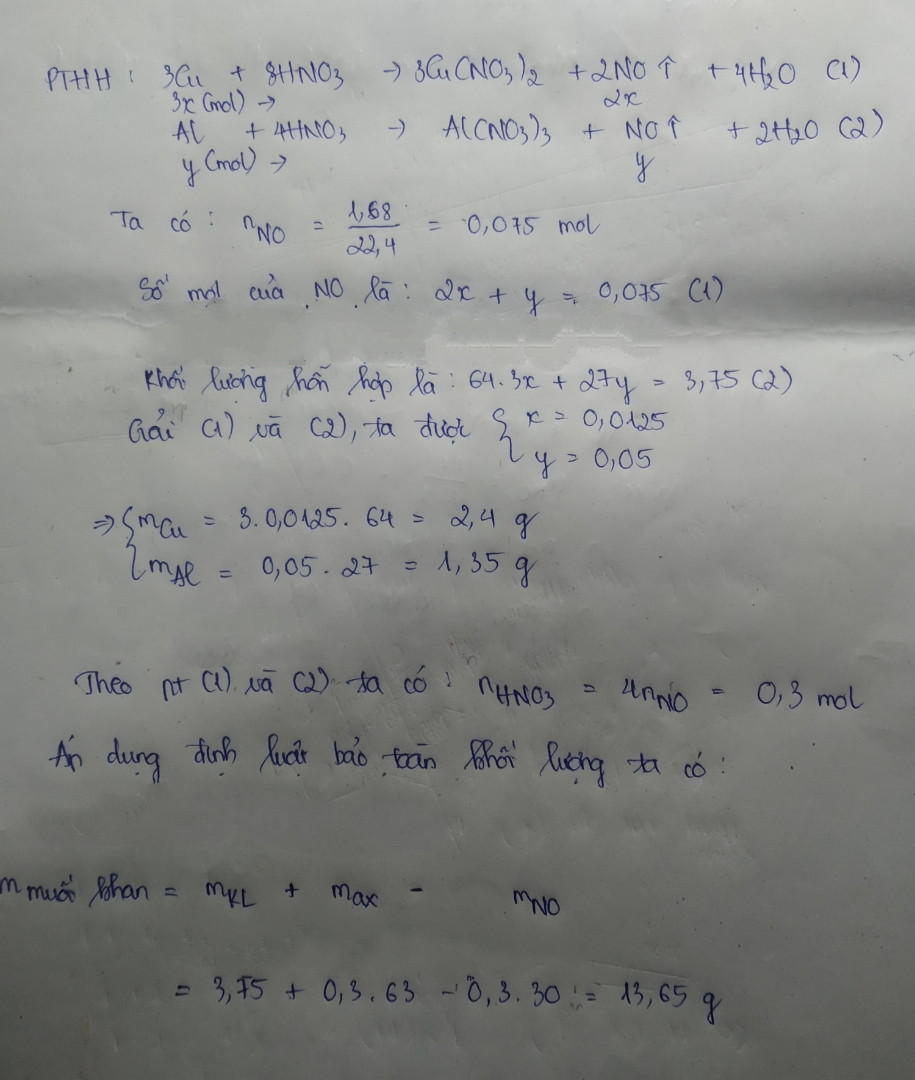 PTHH : 3Cu + 8HNO3 → 3Cu(NO3)2 + 2NO ↑ + 4H2O (1)
3x (mol) → 2x
Al + 4HNO3 → Al(NO3)3 + NO↑ + 2H2O (2)
y (mol) → y
Ta có : nNO = 1,68 / 22,4 = 0,075 mol
Số mol của NO là : 2x + y = 0,075 (1)
Khối lượng hỗn hợp là : 64.3x + 27y = 3,75 (2)
Giải (1) và (2), ta được { x = 0,0125
y = 0,05
⇒ { mCu = 3. 0,0125. 64 = 2,4 g
mAl = 0,05 . 27 = 1,35 g
Theo pt (1) và (2) ta có : nHNO3 = 4nNO = 0,3 mol
Áp dụng định luật bảo toàn khối lượng ta có :
m muối khan = mKL + max - mNO
= 3,75 + 0,3.63 - 0,3.30 = 13,65 g